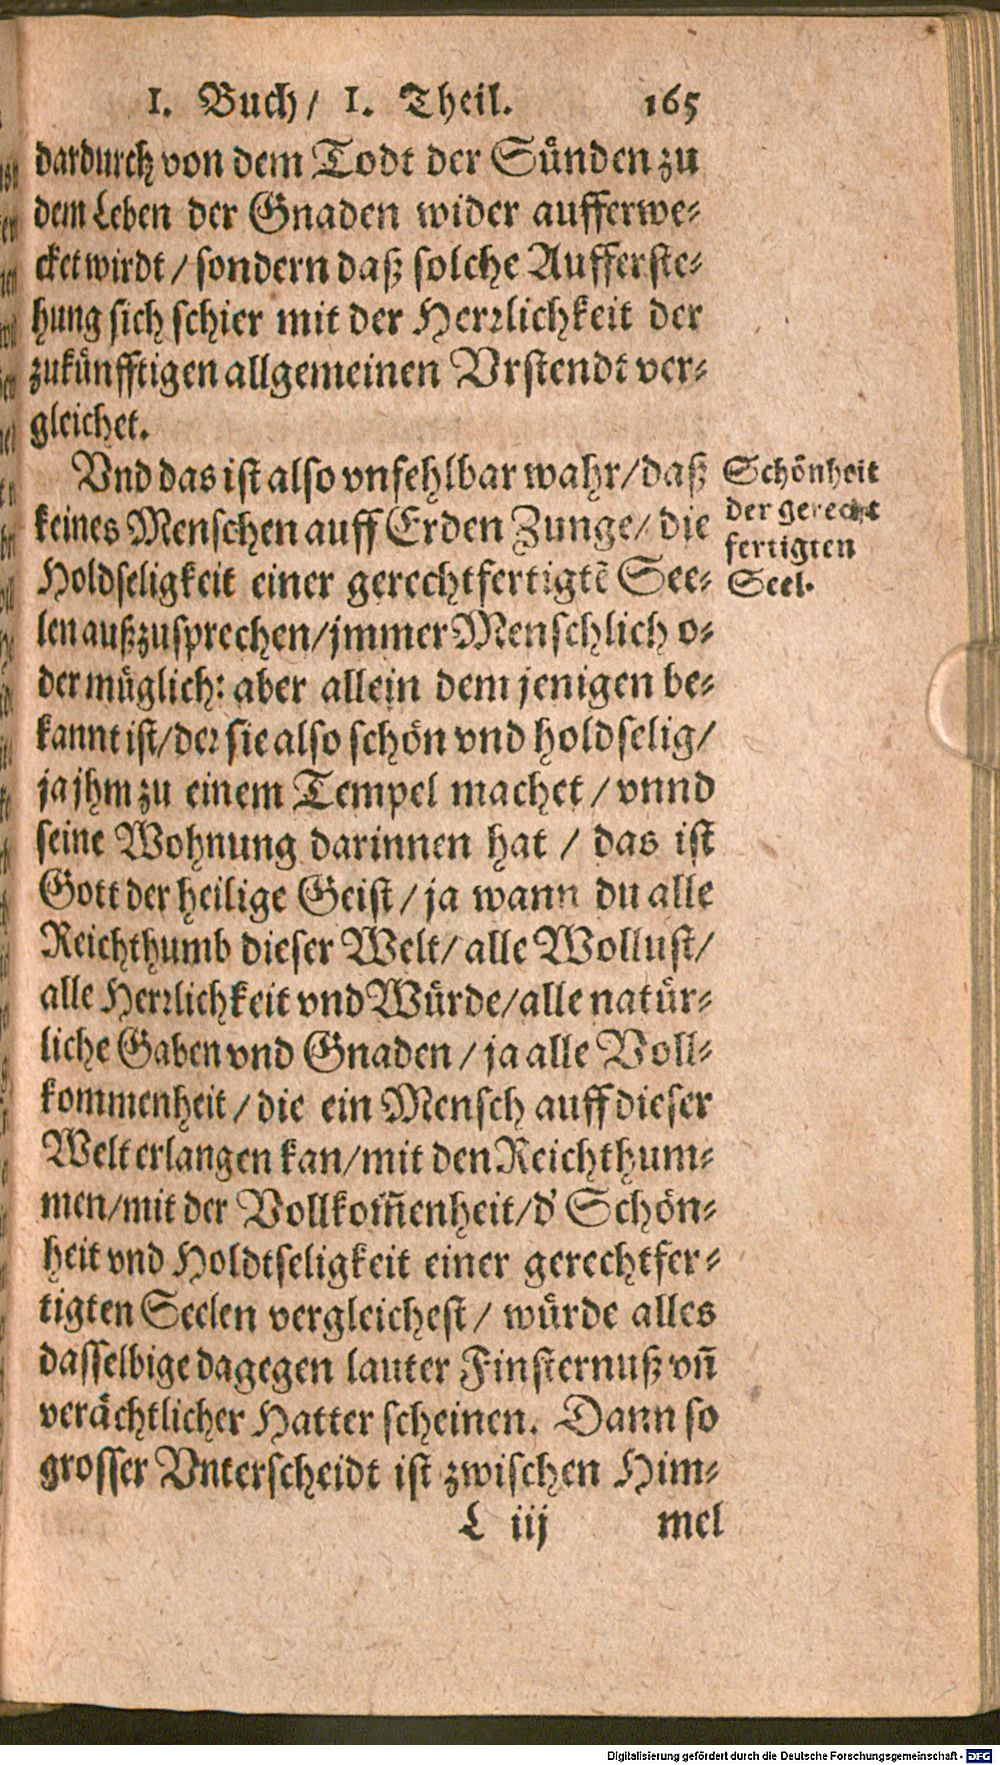 I. Buch/ I. Theil. 165
dardurch von dem Todt der Sünden zu
dem Leben der Gnaden wider aufferwe-
cket wirdt / sondern daß solche Aufferste-
hung sich schier mit der Herrlichkeit der
zukünfftigen allgemeinen Vrstendt ver-
gleichet.
Vnd das ist also vnfehlbar wahr/daß
keines Menschen auff Erden Zunge/ die
Holdseligkeit einer gerechtfertigtē See-
len außzusprechen/jmmer Menschlich o-
der müglich: aber allein dem jenigen be-
kannt ist/der sie also schön vnd holdselig/
ja jhm zu einem Tempel machet / vnnd
seine Wohnung darinnen hat / das ist
Gott der heilige Geist/ ja wann du alle
Reichthumb dieser Welt/ alle Wollust/
alle Herrlichkeit vnd Würde/alle natür-
liche Gaben vnd Gnaden / ja alle Voll-
kommenheit / die ein Mensch auff dieser
Welt erlangen kan/mit den Reichthum-
men/mit der Vollkom̄enheit/d' Schön-
heit vnd Holdtseligkeit einer gerechtfer-
tigten Seelen vergleichest / würde alles
dasselbige dagegen lauter Finsternuß vn̄
verächtlicher Hatter scheinen. Dann so
grosser Vnterscheidt ist zwischen Him-
L iij mel
Schönheit
der gerecht
fertigten
Seel.
Digitalisierung gefördert durch die Deutsche Forschungsgemeinschaft - DFG